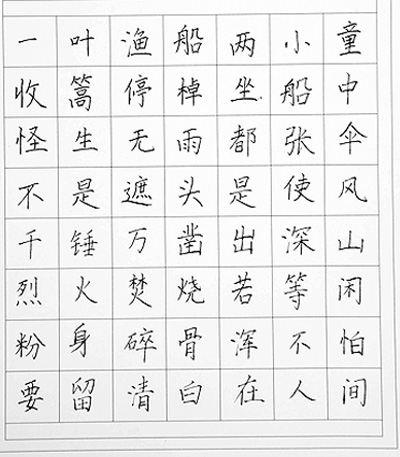 一叶渔船两小童
收篙停棹坐船中
怪生无雨都张伞
不是遮头是使风
千锤万凿出深山
烈火焚烧若等闲
粉身碎骨浑不怕
要留清白在人间